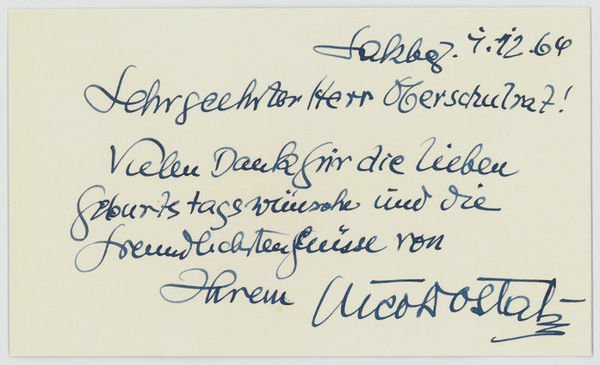 Salzbg. 4.12.64
Sehrgeehrter Herr Oberschulrat!
Vielen Dank für die lieben
Geburtstagswünsche und die
freundlichsten Grüsse von
Ihrem Nico Dostal